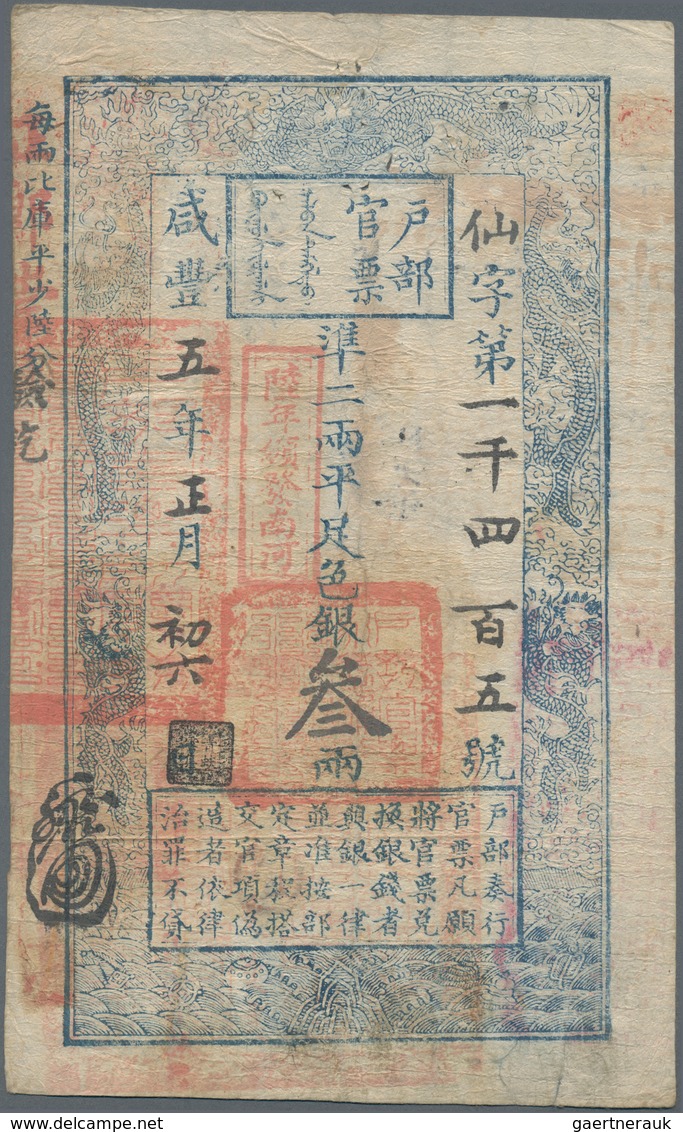 戶部
官票
仙字第一千四百五號
準二兩平足色銀叄兩
陸年頒發南河
咸豐五年正月初六日
每兩比庫平少陸分
戶部奏行
官票凡願
將官票兌
換銀錢者
與銀一律
並准按部
定章程搭
交官項偽
造者依律
治罪不貸
gaertnerauk